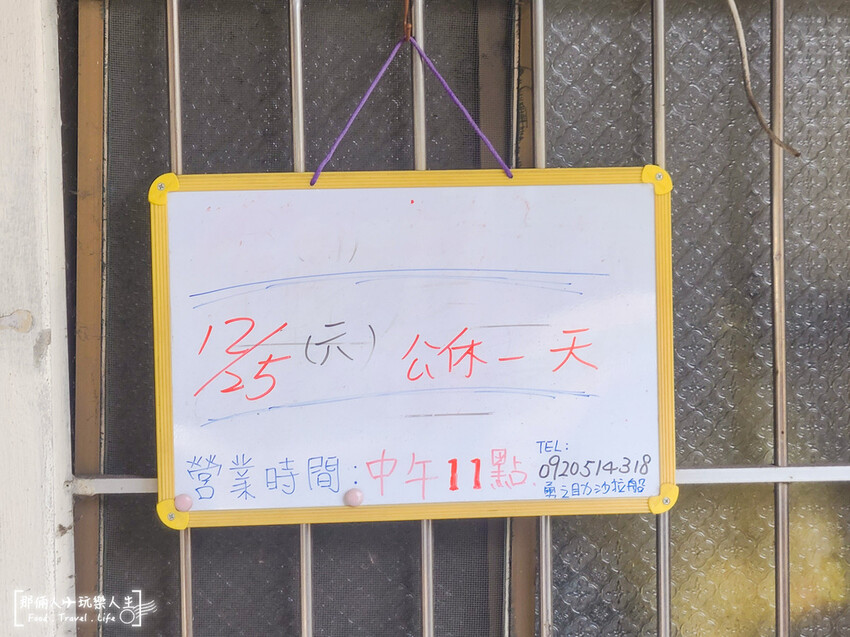 12/25 (六) 公休一天
營業時間:中午11點
TEL:
0920514318
勇之助沙拉船
那倆人の玩樂人生
Food . Travel . Life